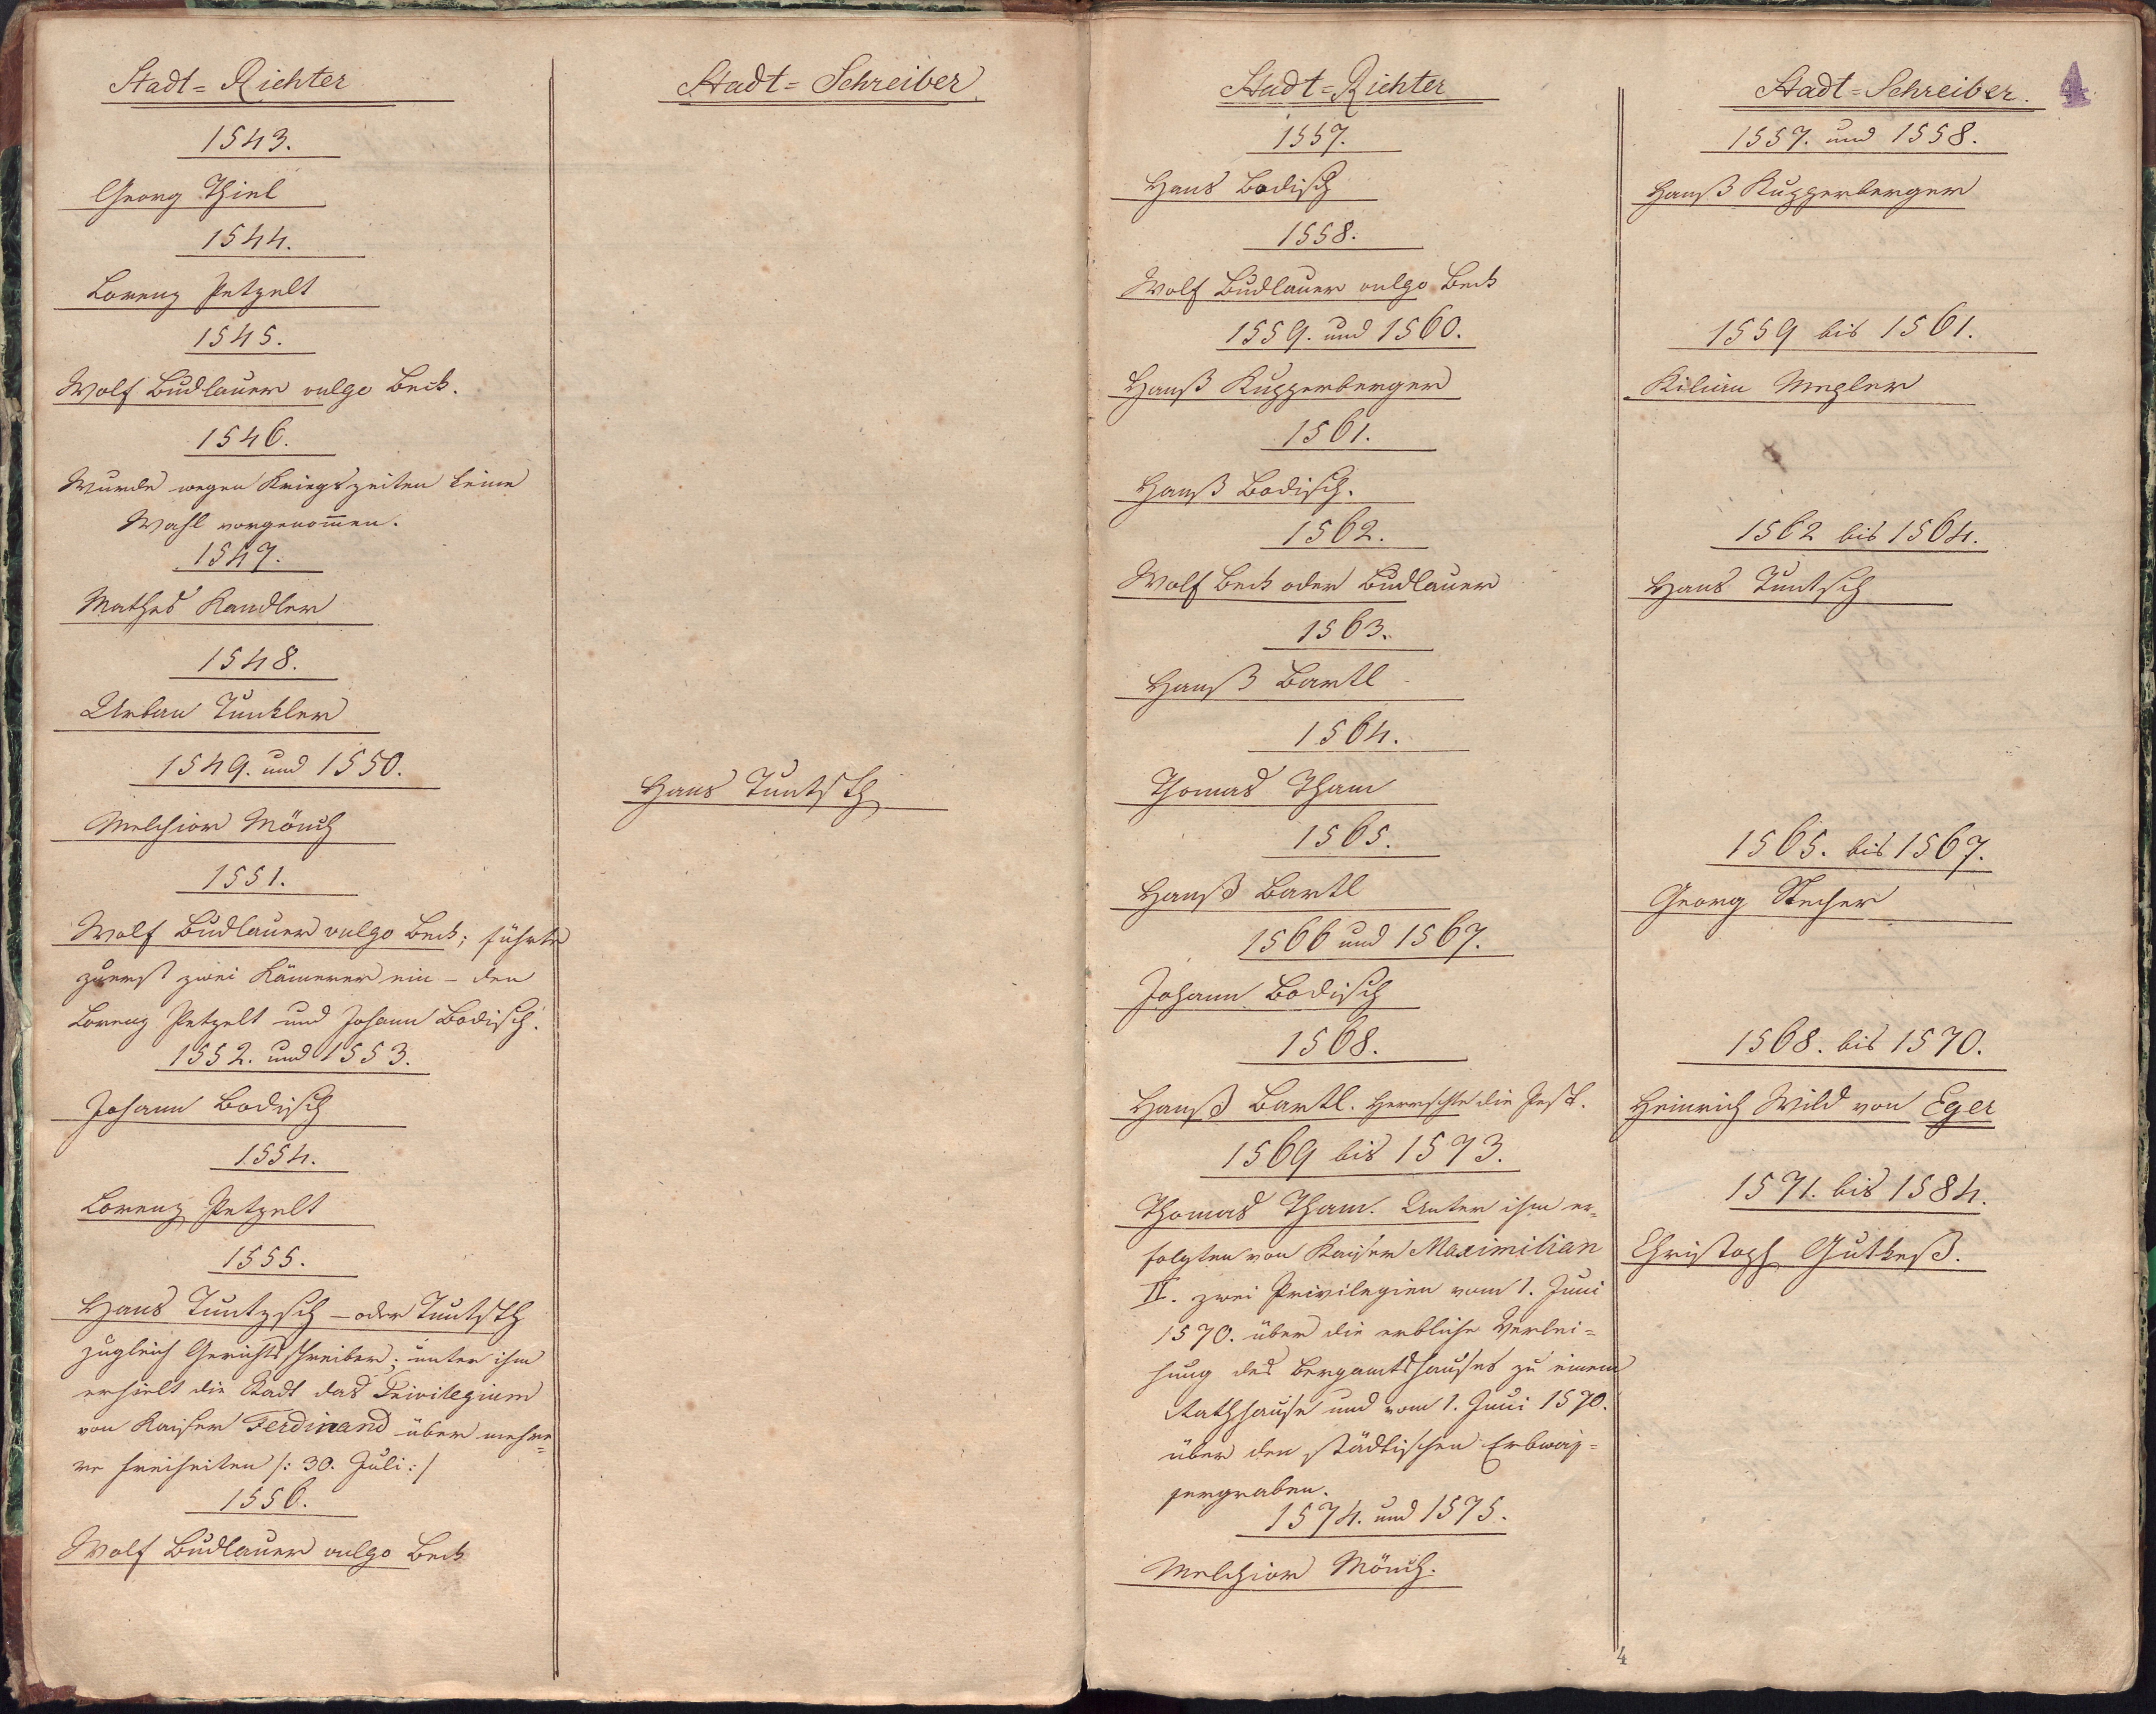 Stadt = Richter
1543.
Georg Thiel
1544.
Lorenz Petzelt
1545.
Wolf Budlauer vulgo Beck.
1546.
Wurde wegen Kriegszeiten keine
Wahl vorgenom̅en.
1547.
Mathes Kandler
1548.
Urban Tunkler
1549. und 1550.
Melchior Mönch
1551.
Wolf Budlauer vulgo Beck; führte
zuerst zwei Käm̅erer ein – den
Lorenz Petzelt und Johann Bodisch.
1552. und 1553.
Johann Bodisch
1554.
Lorenz Petzelt
1555.
Hans Tuntzsch – oder Tuntsch
zugleich Gerichtsschreiber; unter ihm
erhielt die Stadt das Privilegium
von Kaiser Ferdinand über mehre=
re Freiheiten /: 30. Juli :/
1556.
Wolf Budlauer vulgo Beck
Stadt = Schreiber
Hans Tuntsch
Stadt = Richter
1557.
Hans Bodisch
1558.
Wolf Budlauer vulgo Beck
1559. und 1560.
Hanß Kupperberger
1561.
Hanß Bodisch.
1562.
Wolf Beck oder Budlauer
1563.
Hanß Bartl
1564.
Thomas Tham
1565.
Hanß Bartl
1566 und 1567.
Johann Bodisch
1568.
Hanß Bartl. Herrschte die Pest.
1569 bis 1573.
Thomas Tham. Unter ihm er=
folgten von Kaiser Maximilian
II. zwei Privilegien vom 1. Juni
1570. über die erbliche Verlei=
hung des Bergamtshauses zu einem
Rathhause und vom 1. Juni 1570.
über den städtischen Erbwas=
sergraben.
1574. und 1575.
Melchior Mönch.
Stadt = Schreiber.
4
1557. und 1558.
Hanß Kupperberger
1559 bis 1561.
Kilian
1562 bis 1564.
Hans Tuntsch
1565. bis 1567.
Georg Stecher
1568. bis 1570.
Heinrich Wild von Eger
1571. bis 1584.
Christoph Gutkeß.
4